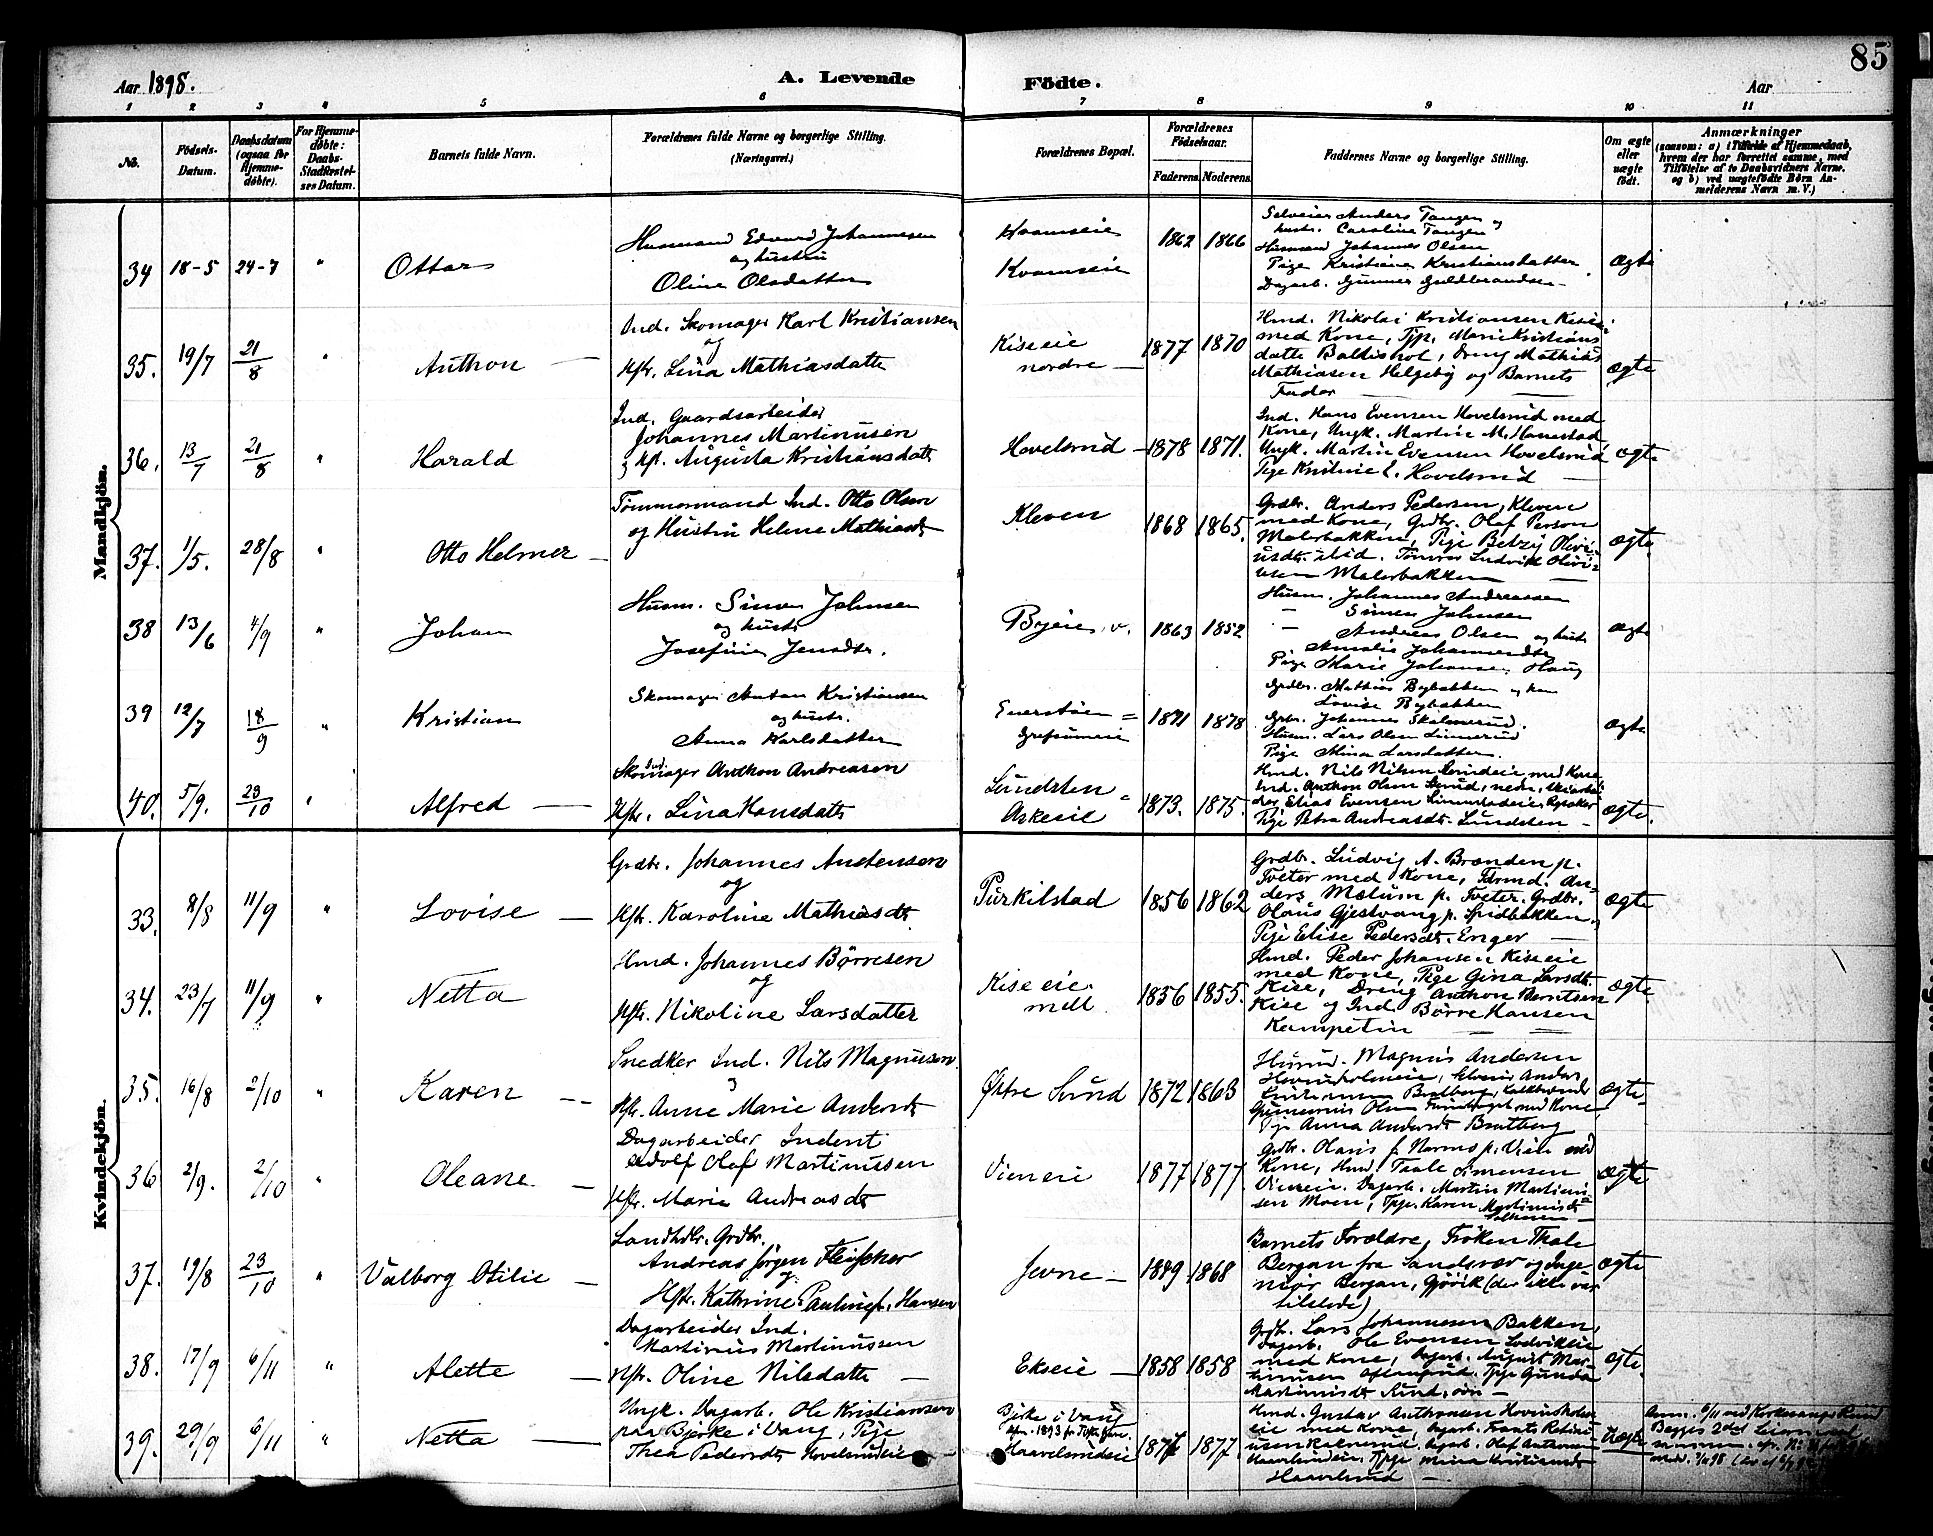 85
Aar 1898.
A. Levende
Födte.
Aar
1 2 3 4 5 6 7 8 9 10 11
No.
Födsels-
Datum.
Daabsdatum
(ogsaa for
Hjemme-
döbte).
For Hjemme-
döbte:
Daabs-
Stadfæstel-
ses Datum.
Barnets fulde Navn.
Forældrenes fulde Navne og borgerlige Stilling.
(Næringsvei.)
Forældrenes Bopæl.
Forældrenes
Födselsaar.
Faderens. Moderens.
Faddernes Navne og borgerlige Stilling.
Om ægte
eller
uægte
födt.
Anmærkninger
(saasom: a) i Tilfælde af Hjemmedaab,
hvem der har forrettet samme, med
Tilföielse af to Daabsvidners Navne,
og b) ved uægtefödte Börn An-
melderens Navn m. V.)
Mandkjön.
34 18-5 24-7 " Ottar
Husmand Edvard Johannesen
og hustru
Oline Olsdatter
Kvamseie
Kvamseie
1862 1866
Selveier Anders Tangen og
hustr. Caroline Tangen
Husmand Johannes Olsen
Pige Kristiane Kristiansdatter
Dagarb. Gunner Guldbrandsen
ægte
35. 19/7 21/8 " Anthon
Ind. Skomager Karl Kristiansen
og
Hstr. Lina Mathiasdatter
Kiseeie
nordre
1877 1870
Hmd. Nikolai Kristiansen Kiseie
med Kone, Tjp. Marie Kristians
datter Baltishol, Dreng Mathias
Mathiasen Helgeby og Barnets
Fader
ægte
36. 13/7 21/8 " Harald
Ind. Gaardsarbeider
Johannes Martinusen
og Hst. Augusta Kristiansdatt
Hovelsrud
1878 1871.
Ind. Hans Evensen Hovelsrud med
Kone, Ungk. Martin M. Hanestad
Ungk. Martin Evensen Hovelsrud
Pige Kristine E. Hovelsrud
ægte
37. 1/5. 28/8 " Otto Helmer
Tömmermand Ind. Otto Olsen
og Hustru Helene Mathiasdt
Kleven
1868 1865.
Grdbr. Anders Pedersen, Kleven
med Kone, Grdbr. Olaf Person
Malerbakken, Pige Betzy Olivi-
usdt. ibid. Tömrer Ludvik Olivi-
usen Malerbakken
ægte
38 13/6 4/9 " Johan
Husm. Simen Johnsen
og hustr
Josefine Jensdtr.
Byeie, v.
1863 1852
Husm. Johannes Andreassen
— Simen Johnsen
— Andreas Olsen og hustr
Amalie Johannesdtr
Pige Marie Johansen Haug
ægte
39 12/7 18/9 " Kristian
Skomager Anton Kristiansen
og hustr.
Anna Karlsdatter
Enerstöen =
Grefsumeie
1871 1878
Grdbr. Mathias Bybakken og kone
Lovise Bybakken
Grbr. Johannes Skalmerud.
Husm. Lars Olsen Linnerud
Pige Mina Larsdatter
ægte
40. 5/9. 23/10 " Alfred
Ind.
Skomager Anthon Andreasen
Hstr. Lina Hansdatter
Lundsten =
Askeeie
1873. 1875.
Hmd. Nils Nilsen Sundeie med Kone
Ind. Anthon Olsen Sund, nedre,
Elias Evensen
Pige Petra Andreasdt. Lundsten
ægte.
Kvindekjön.
33. 8/8 11/9 " Lovise
Grdbr. Johannes Austensen
og
Hstr. Karoline Mathiasdt
Purkilstad
1856 1862
Grdbr. Ludvig A. Brænden p.
Tveter med Kone, Fdrmd. An-
ders Mælum p. Tveter. Grdbr.
Olaus Gjestvang p. Smidbakken,
Pige Elise Pedersdt. Enger
ægte
34. 23/7 11/9 " Netta
Hmd. Johannes Börresen
og
Hstr. Nikoline Larsdatter
Kiseeie
mell
1856 1855.
Hmd. Peder Johansen Kiseeie
med Kone, Pige Gina Larsdt.
Kise, Dreng Anthon Berntsen
Kise og Ind. Börre Hansen
Kampetin
ægte
35. 16/8 2/10 " Karen
Snedker Ind. Nils Magnussen
og
Hstr. Anne Marie Andersdt
Østre Sund
1872 1863
Husmd. Magnus Andersen
Hovinsholmeie, Selveier Anders
Bratberg, Kalkbrænder
Gunerius Olsen med Kone
Pige Anna Andersdt Bratberg
ægte
36 2/9. 2/10 " Oleane
Dagarbeider Inderst
Adolf Olaf Martinussen
Hstr. Marie Andreasdt
Vieneie
1877 1877.
Grdbr. Olaus J. Narmo p. Vien med
Kone, Hmd. Taale Simensen
Vieneie. Dagarb. Martin Martinu-
sen Moen, Tpge. Karen Martinusdt
ægte
37. 19/8 23/10 " Valborg Otilie
Landhdlr. Grdbr.
Andreas Jörgen Fleischer
og
Hstr. Kathrine Paulinef. Hansen
Jevne
1869 1868
Barnets Forældre, Fröken Thale
Bergan fra Sandsvær og Inge-
niör Bergan, Gjövik (der ikke var
tilstede)
ægte
38. 17/9 6/11 " Alette
Dagarbeider Ind.
Martinus Martinussen
Hstr. Oline Nilsdatter
Ekseie
1858 1858
Grdb. Lars Johannesen Bakken,
Dagarb. Ole Evensen Ludvikeie
med Kone, Dagarb. August Mar-
tinusen Tpge Gunda
Martinusdt
ægte.
39. 29/9 6/11 " Netta
Ungk. Dagarb. Ole Kristiansen
paa Bjerke i Vang, Pige
Thea Pedersdt Hovelsrudeie
Bjerke i Vang
Haavelsrudeie
1876 1877.
Hmd. Gustav Anthonsen Hovinsholm-
eie med Kone, Dagarb. Frants
Dagarb. Olaf Anthonsen
Haavelsrudeie. Tpge Mina Kristiansdt
Haavelsrud
Uægte
Ann. 6/11 ved Kirkesanger Rund
Begges 2det Leiermaal